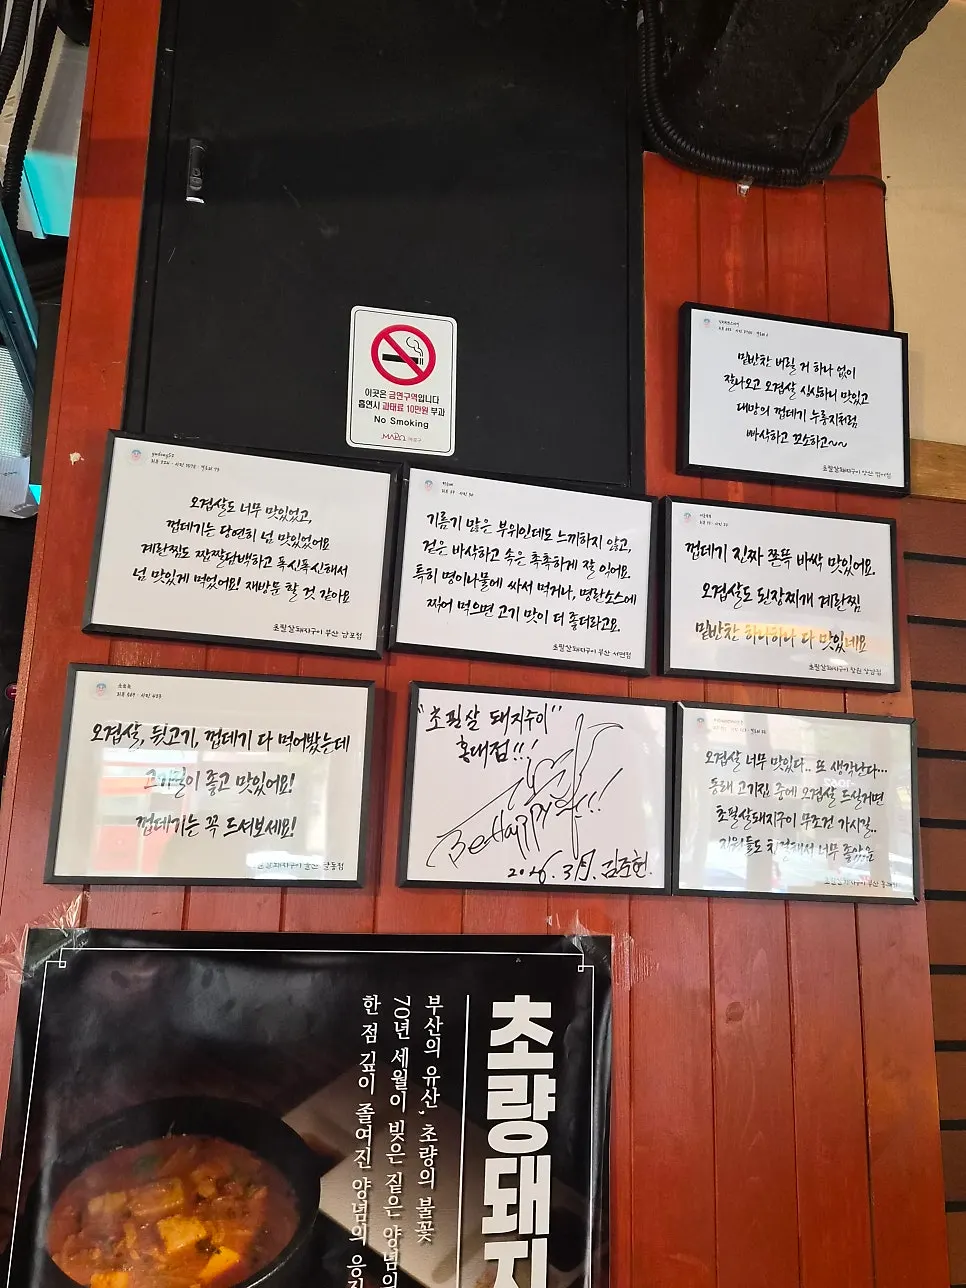 이곳은 금연구역입니다
흡연시 과태료 10만원 부과
No Smoking
MAPO 마포구
밑반찬 버릴 거 하나 없이
잘나오고 오겹살 싱싱하니 맛있고
대망의 껍데기 누룽지처럼
빠삭하고 꼬소하고~~
초필살돼지구이 양산
오겹살도 너무 맛있었고,
껍데기는 당연히 넘 맛있었어요
계란찜도 짭짤담백하고 폭신폭신해서
넘 맛있게 먹었어요! 재방문 할 것 같아요
초필살돼지구이 부산 남포점
기름기 많은 부위인데도 느끼하지 않고,
겉은 바삭하고 속은 촉촉하게 잘 익어요.
특히 명이나물에 싸서 먹거나, 명란소스에
찍어 먹으면 고기 맛이 더 좋더라고요.
초필살돼지구이 부산 서면점
껍데기 진짜 쫀뜩 바싹 맛있어요.
오겹살도 된장찌개 계란찜
밑반찬 하나하나 다 맛있네요
초필살돼지구이 창원 상남점
오겹살, 뒷고기, 껍데기 다 먹어봤는데
고기질이 좋고 맛있어요!
껍데기는 꼭 드셔보세요!
초필살돼지구이 울산
"초필살 돼지구이"
홍대점!!!
Be Happy
2026. 3月. 김준현.
오겹살 너무 맛있다.. 또 생각난다...
동래 고기집 중에 오겹살 드실거면
초필살돼지구이 무조건 가시길..
직원들도 친절해서 너무 좋았음
초필살돼지구이 부산 동래점
초량돼지
부산의 유산, 초량의 불꽃
70년 세월이 빚은 짙은 양념의
한 점 깊이 졸여진 양념의